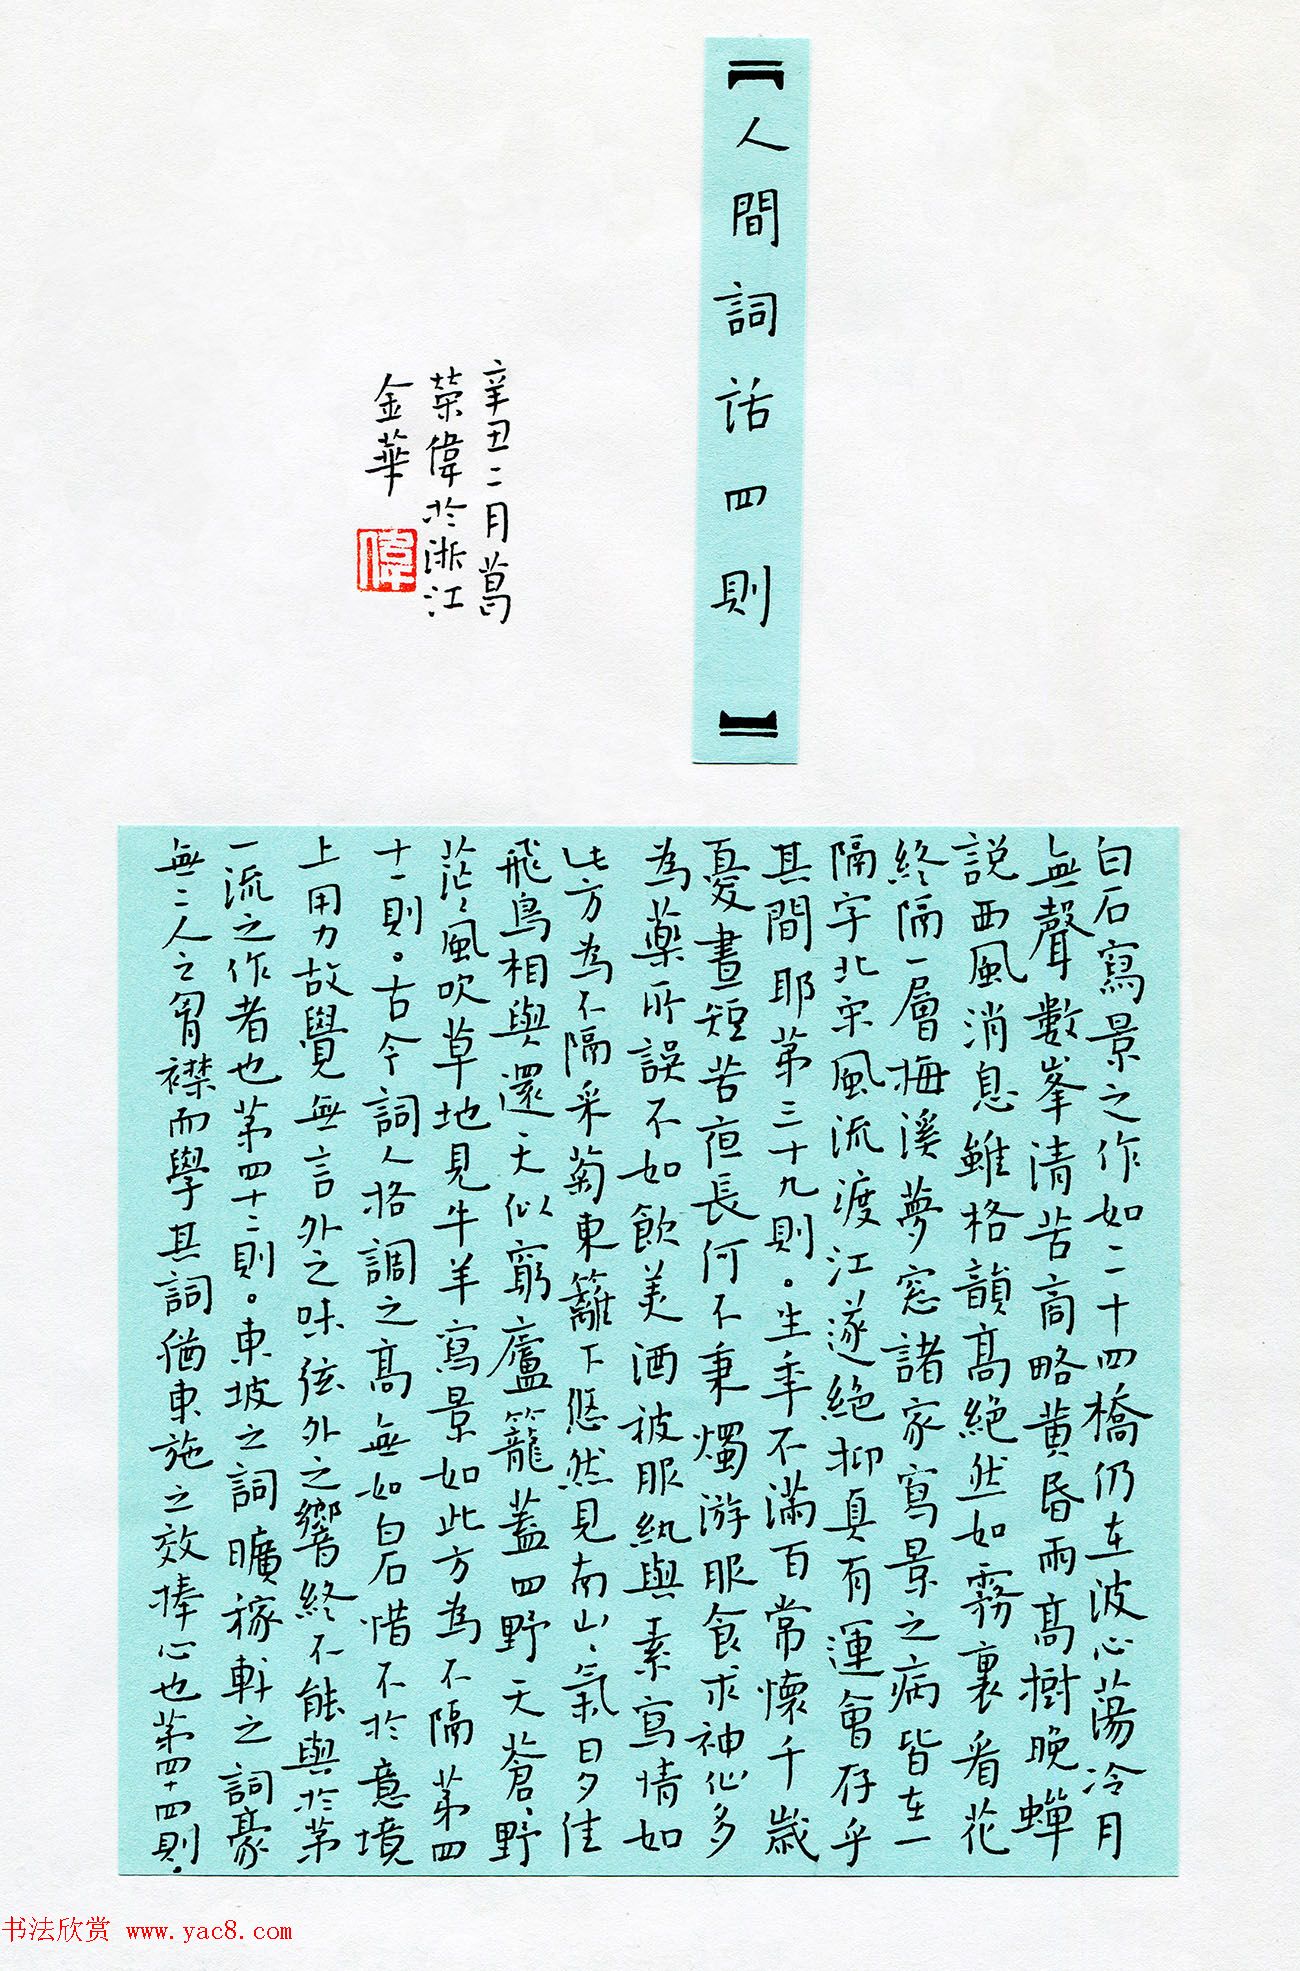 【人間詞話四則】
辛丑二月葛
榮偉於浙江
金華
偉
白石寫景之作如二十四橋仍在波心蕩冷月
無聲數峯清苦商略黄昏雨高樹晚蟬
説西風消息雖格韻高絕然如霧裏看花
終隔一層梅溪夢窓諸家寫景之病皆在一
隔字北宋風流渡江遂絕抑真有運會存乎
其間耶第三十九則。生年不滿百常懷千歲
憂晝短苦夜長何不秉燭游服食求神仙多
為藥所誤不如飲美酒被服紈與素寫情如
此方為不隔采菊東籬下悠然見南山、氣日夕佳
飛鳥相與還天似穹廬籠蓋四野天蒼、野
茫、風吹草地見牛羊寫景如此方為不隔第四
十一則。古今詞人格調之高無如白石惜不於意境
上用力故覺無言外之味弦外之響終不能與於第
一流之作者也第四十二則。東坡之詞曠稼軒之詞豪
無二人之胷襟而學其詞猶東施之效捧心也第四十四則。
书法欣赏 www.yac8.com